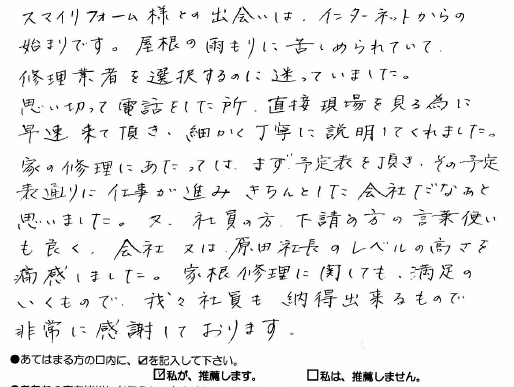 スマイリフォーム様との出会いは、インターネットからの
始まりです。屋根の雨もりに苦しめられていて、
修理業者を選択するのに迷っていました。
思い切って電話をした所、直接現場を見る為に
早速来て頂き、細かく丁寧に説明してくれました。
家の修理にあたっては、まず予定表を頂き、その予定
表通りに仕事が進みきちんとした会社だなあと
思いました。又、社員の方、下請の方の言葉使い
も良く、会社又は原田社長のレベルの高さを
痛感しました。家根修理に関しても、満足の
いくもので、我々社員も納得出来るもので
非常に感謝しております。
●あてはまる方の口内に、☑を記入して下さい。
☑私が、推薦します。 □私は、推薦しません。